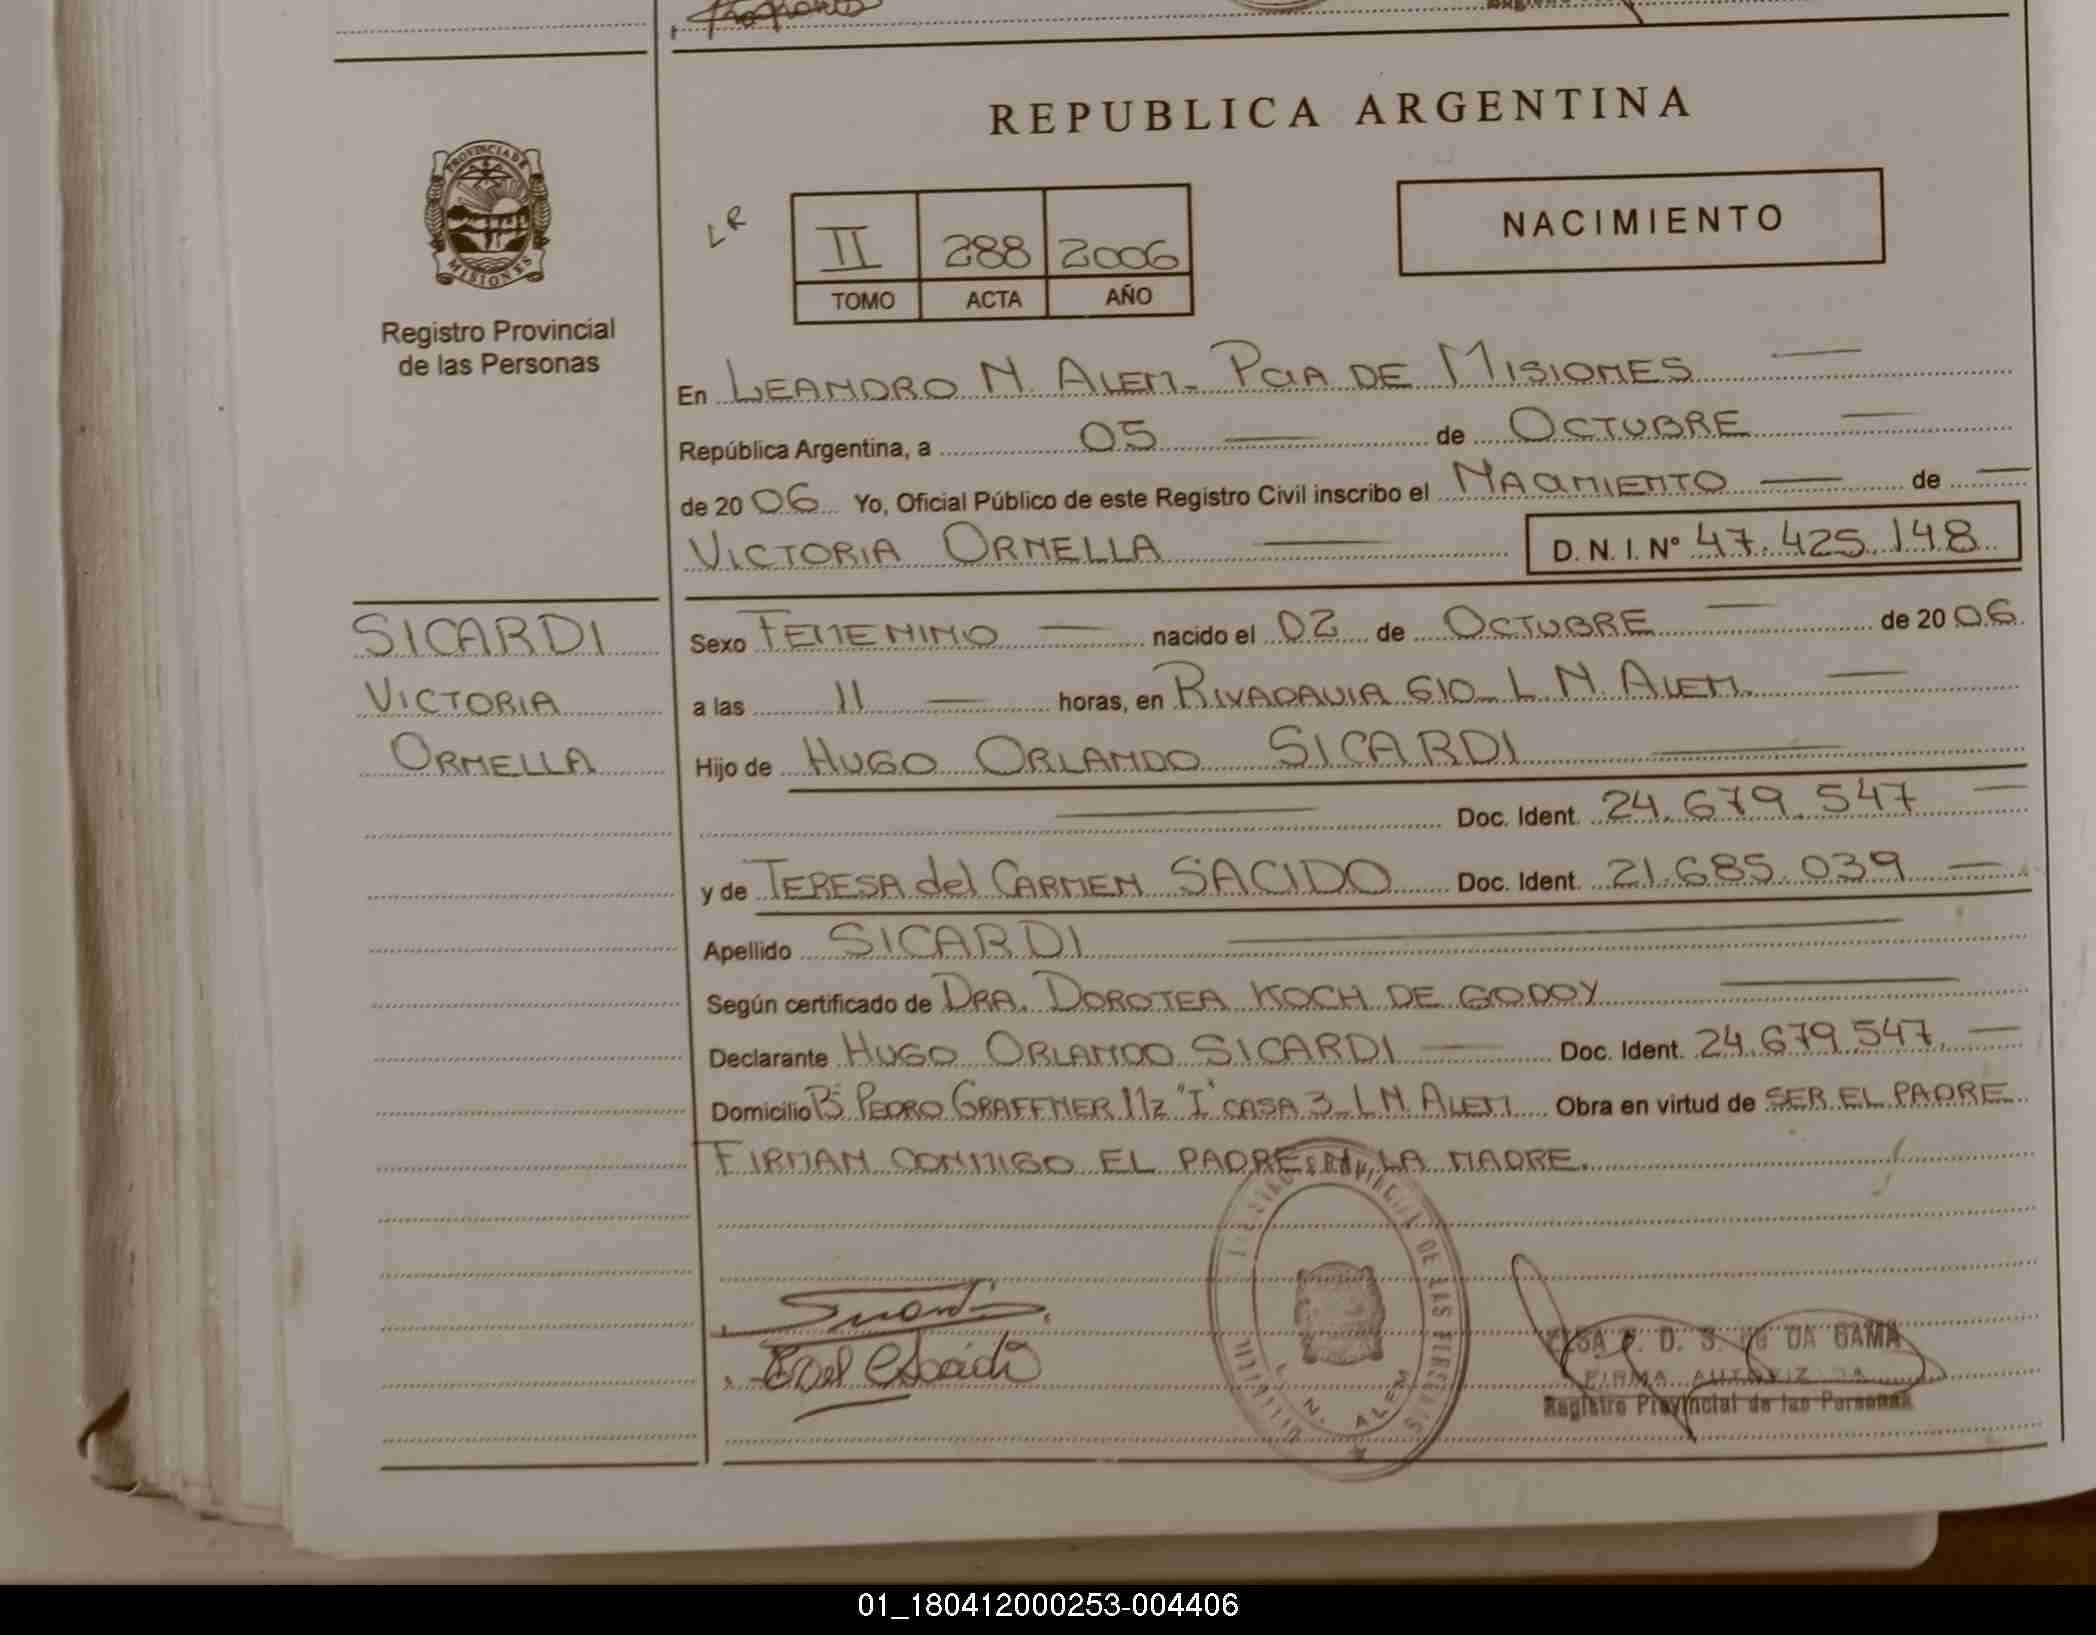 REPUBLICA ARGENTINA
PROVINCIA DE
MISIONES
Registro Provincial
de las Personas
LR
II 288 2006
TOMO ACTA AÑO
NACIMIENTO
En LEANDRO N. ALEM - PCIA DE MISIONES
República Argentina, a 05 de OCTUBRE
de 2006 Yo, Oficial Público de este Registro Civil inscribo el NACIMIENTO de
VICTORIA ORNELLA D. N. I. Nº 47.425.148
SICARDI
VICTORIA
ORNELLA
Sexo FEMENINO nacido el 02 de OCTUBRE de 2006
a las 11 horas, en RIVADAVIA 610 - L. N. ALEM.
Hijo de HUGO ORLANDO SICARDI
Doc. Ident. 24.679.547
y de TERESA del CARMEN SACIDO Doc. Ident. 21.685.039
Apellido SICARDI
Según certificado de DRA. DOROTEA KOCH DE GODOY
Declarante HUGO ORLANDO SICARDI Doc. Ident. 24.679.547
Domicilio Bº PEDRO GRAFFNER Mz "I" CASA 3 - L.N. ALEM Obra en virtud de SER EL PADRE
FIRMAN CONMIGO EL PADRE Y LA MADRE.
DE LAS PERSONAS
L. N. ALEM
DA GAMA
FIRMA AUTORIZADA
Registro Provincial de las Personas
01_180412000253-004406